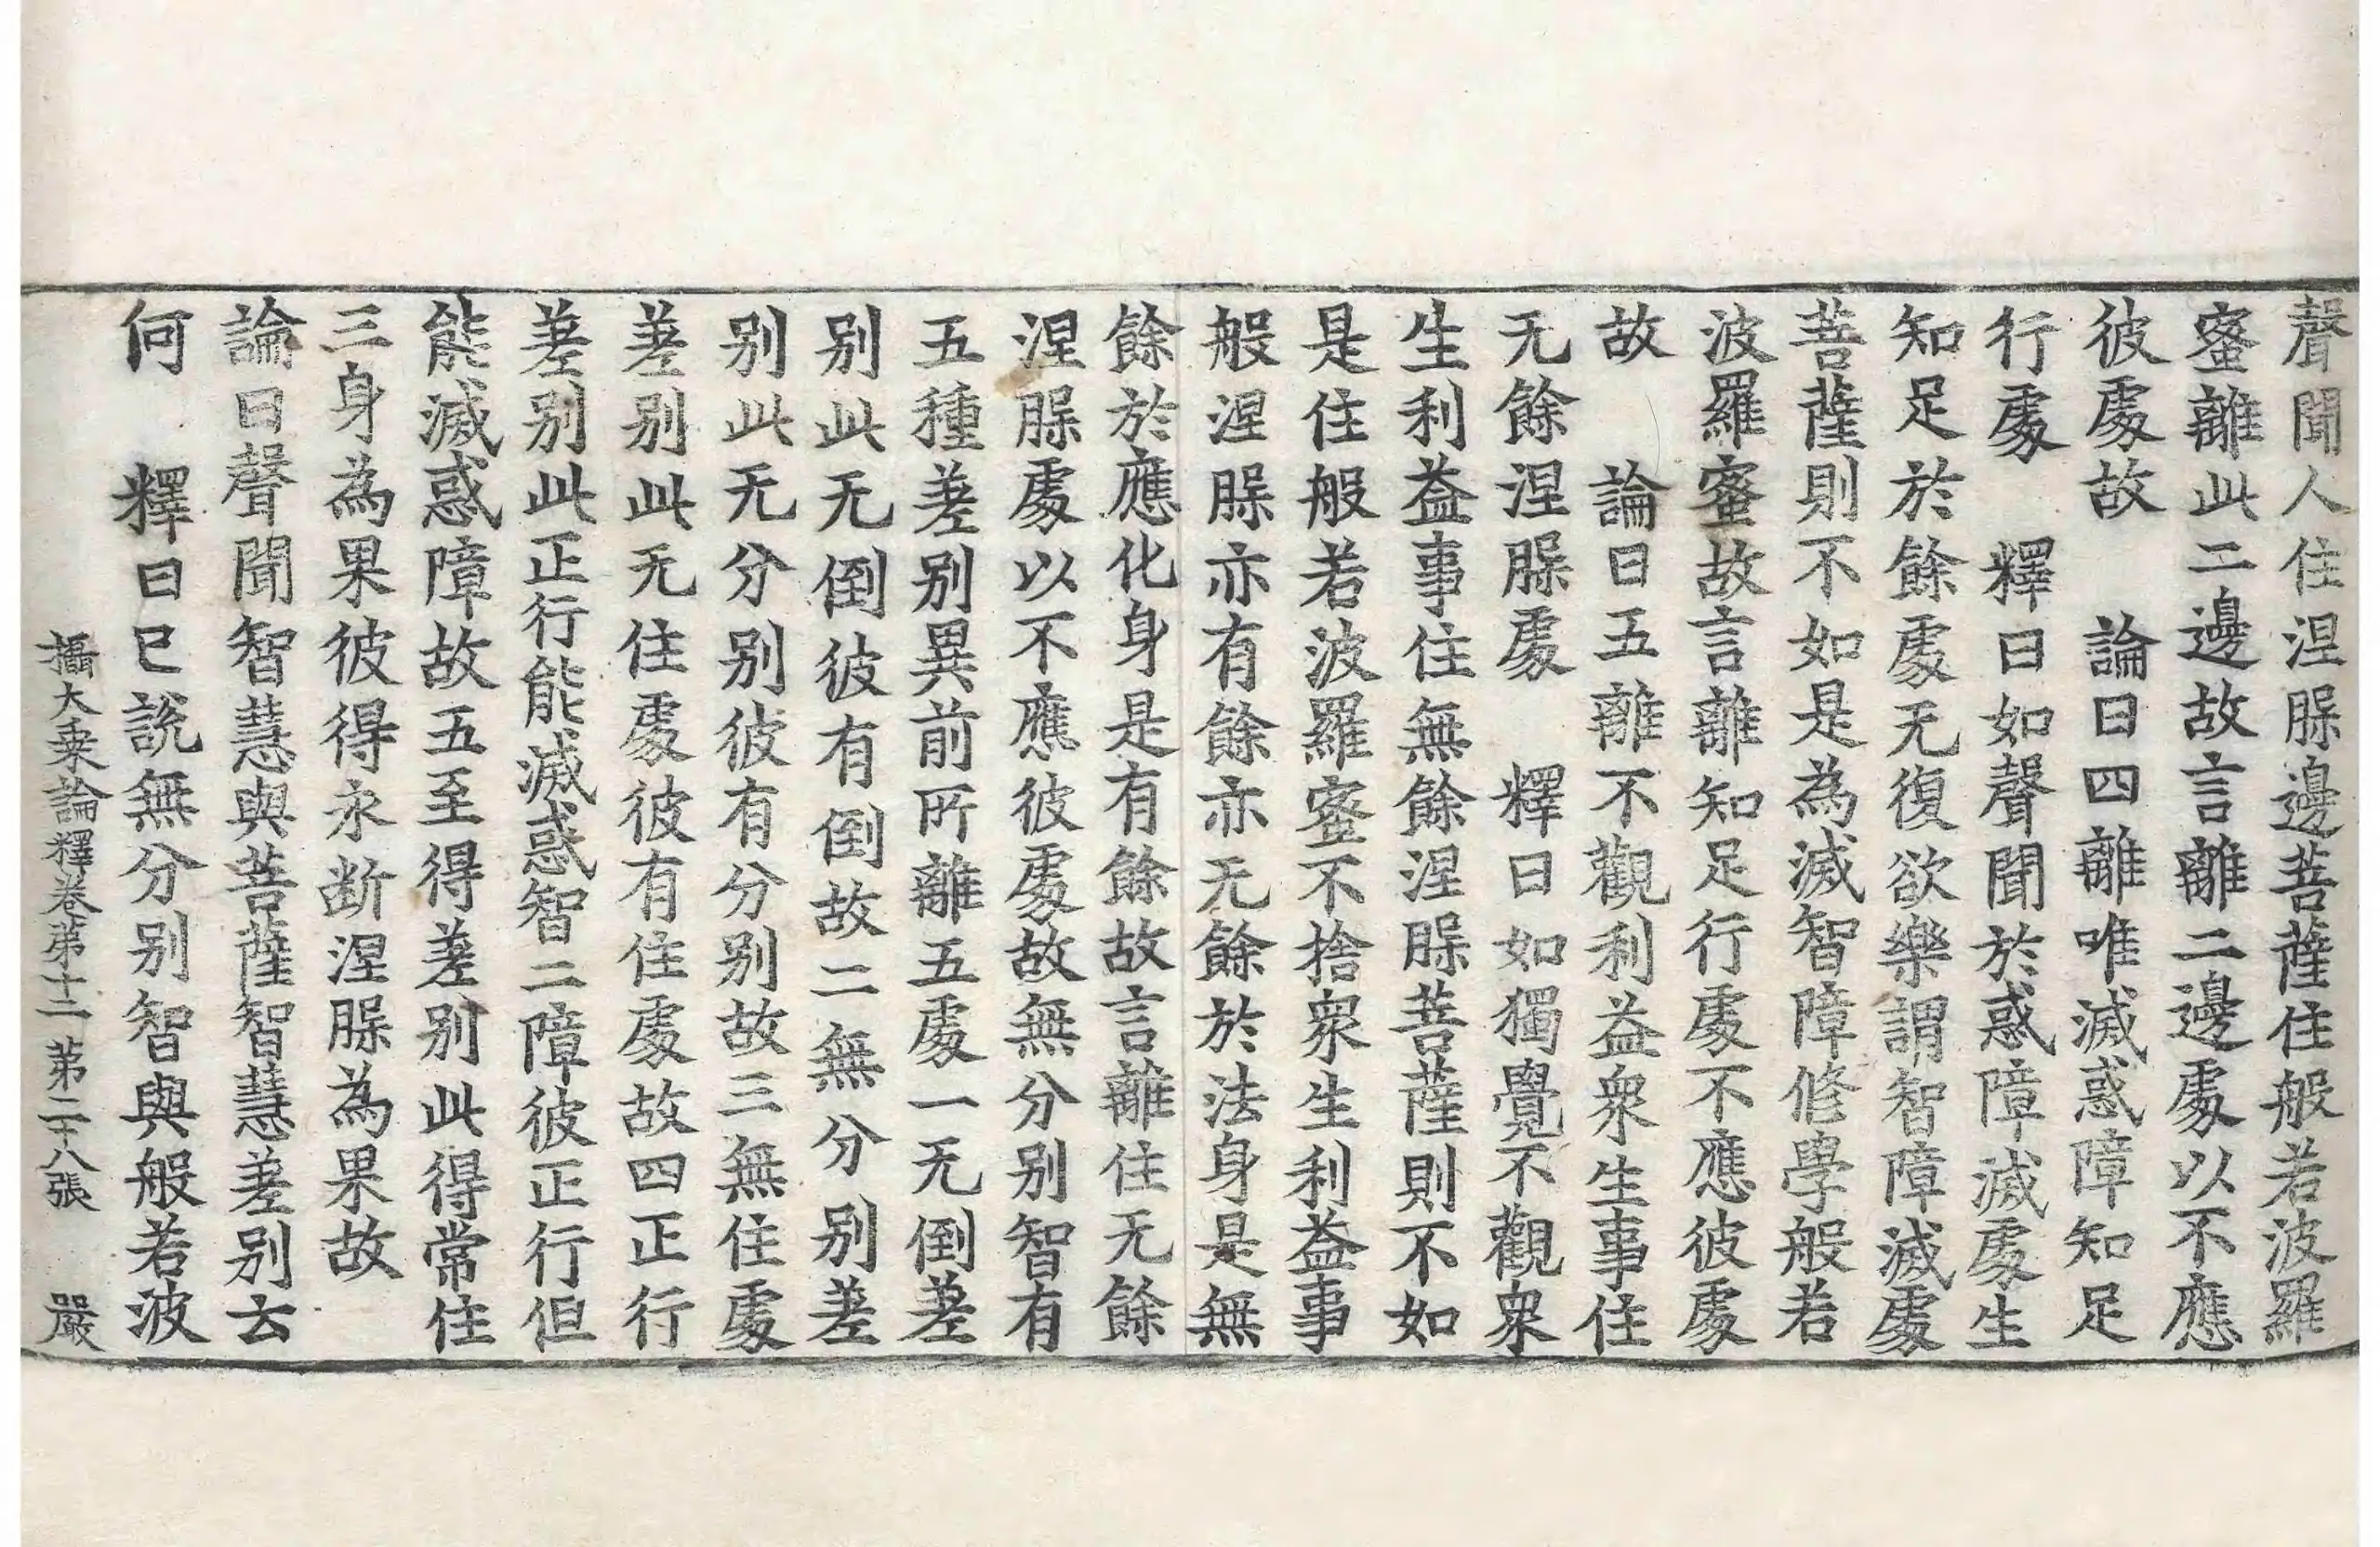 聲聞人住涅槃邊菩薩住般若波羅
蜜離此二邊故言離二邊處以不應
彼處故　論曰四離唯滅惑障知足
行處　釋曰如聲聞於惑障滅處生
知足於餘處无復欲樂謂智障滅處
菩薩則不如是為滅智障修學般若
波羅蜜故言離知足行處不應彼處
故　論曰五離不觀利益衆生事住
无餘涅槃處　釋曰如獨覺不觀衆
生利益事住無餘涅槃菩薩則不如
是住般若波羅蜜不捨衆生利益事
般涅槃亦有餘亦无餘於法身是無
餘於應化身是有餘故言離住无餘
涅槃處以不應彼處故無分别智有
五種差别異前所離五處一无倒差
别此无倒彼有倒故二無分别差
别此无分别彼有分别故三無住處
差别此无住處彼有住處故四正行
差别此正行能滅惑智二障彼正行但
能滅惑障故五至得差别此得常住
三身為果彼得永断涅槃為果故
論曰聲聞智慧與菩薩智慧差别云
何　釋曰已說無分别智與般若波
攝大乗論釋卷苐十二　苐二十八張　嚴